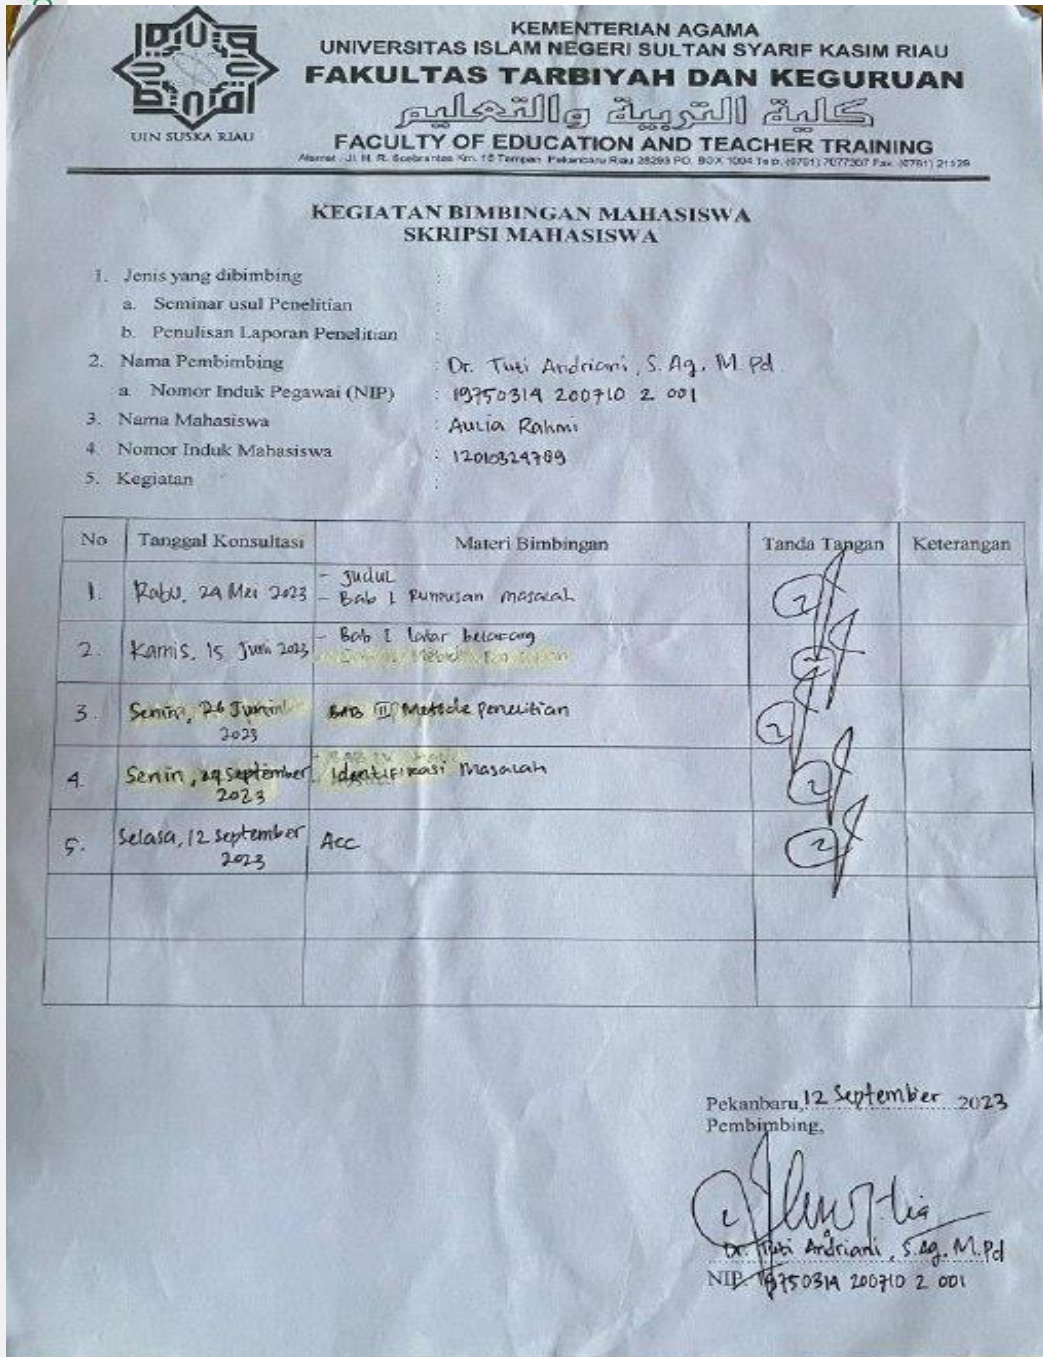 UIN SUSKA RIAU
KEMENTERIAN AGAMA
UNIVERSITAS ISLAM NEGERI SULTAN SYARIF KASIM RIAU
FAKULTAS TARBIYAH DAN KEGURUAN
كلية التربية والتعليم
FACULTY OF EDUCATION AND TEACHER TRAINING
KEGIATAN BIMBINGAN MAHASISWA
SKRIPSI MAHASISWA
1. Jenis yang dibimbing :
a. Seminar usul Penelitian :
b. Penulisan Laporan Penelitian :
2. Nama Pembimbing : Dr. Tuti Andriani, S.Ag, M.Pd
a Nomor Induk Pegawai (NIP) : 19750314 200710 2 001
3. Nama Mahasiswa : Aulia Rahmi
4. Nomor Induk Mahasiswa :
5. Kegiatan :
No Tanggal Konsultasi Materi Bimbingan Tanda Tangan Keterangan
1. Rabu, 24 Mei 2023 - Judul
- Bab I Rumusan masalah
2. Kamis, 15 Juni 2023 - Bab I latar belakang
3. Senin, 26 Juni 2023 BAB III Metode penelitian
4. Senin, September 2023 Identifikasi Masalah
5. Selasa, 12 September 2023 Acc
Pekanbaru, 12 September 2023
Pembimbing,
Dr. Tuti Andriani, S.Ag, M.Pd
NIP. 19750314 200710 2 001